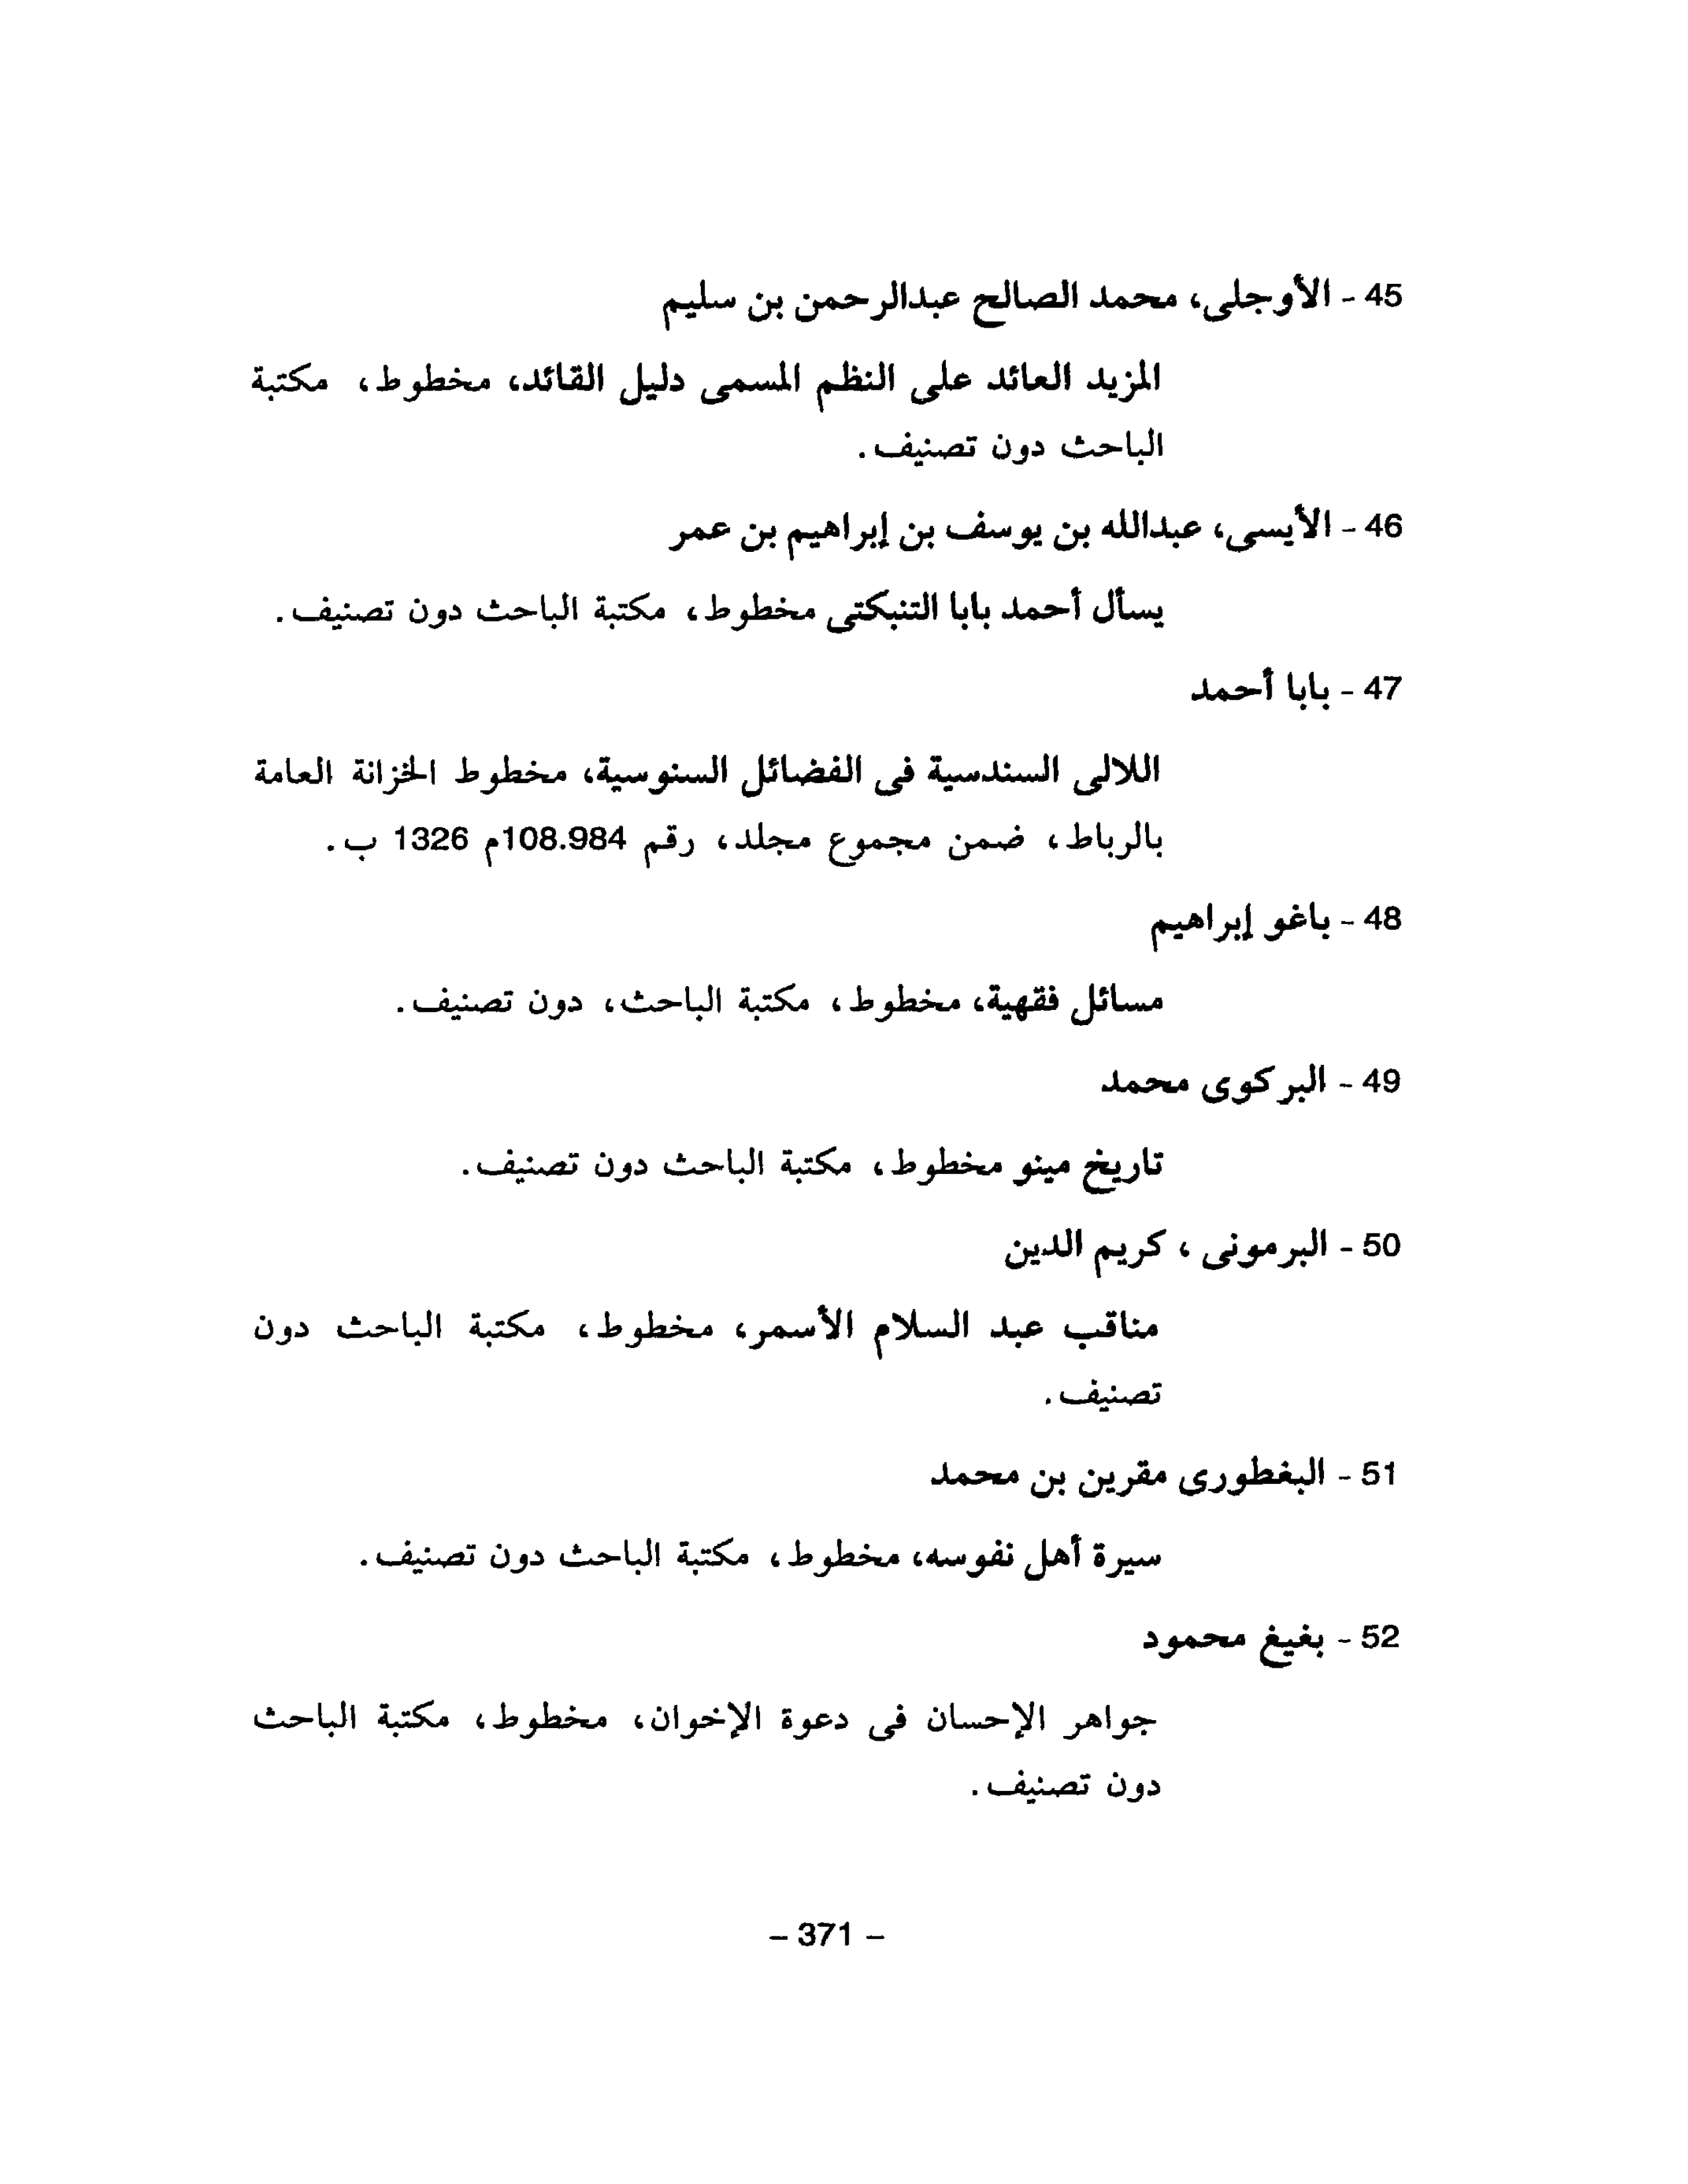 45 - الأوجلى، محمد الصالح عبدالرحمن بن سليم
المزيد العائد على النظم المسمى دليل القائد، مخطوط، مكتبة
الباحث دون تصنيف.
46 - الأيسى، عبدالله بن يوسف بن إبراهيم بن عمر
يسأل أحمد بابا التنبكتى مخطوط، مكتبة الباحث دون تصنيف.
47 - بابا أحمد
اللالى السندسية فى الفضائل السنوسية، مخطوط الخزانة العامة
بالرباط، ضمن مجموع مجلد، رقم 108.984م 1326 ب.
48 - باغو إبراهيم
مسائل فقهية، مخطوط، مكتبة الباحث، دون تصنيف.
49 - البركوى محمد
تاريخ مينو مخطوط، مكتبة الباحث دون تصنيف.
50 - البرمونى، كريم الدين
مناقب عبد السلام الأسمر، مخطوط، مكتبة الباحث دون
تصنيف.
51 - البغطورى مقرين بن محمد
سيرة أهل نفوسه، مخطوط، مكتبة الباحث دون تصنيف.
52 - بغيغ محمود
جواهر الإحسان فى دعوة الإخوان، مخطوط، مكتبة الباحث
دون تصنيف.
- 371 -